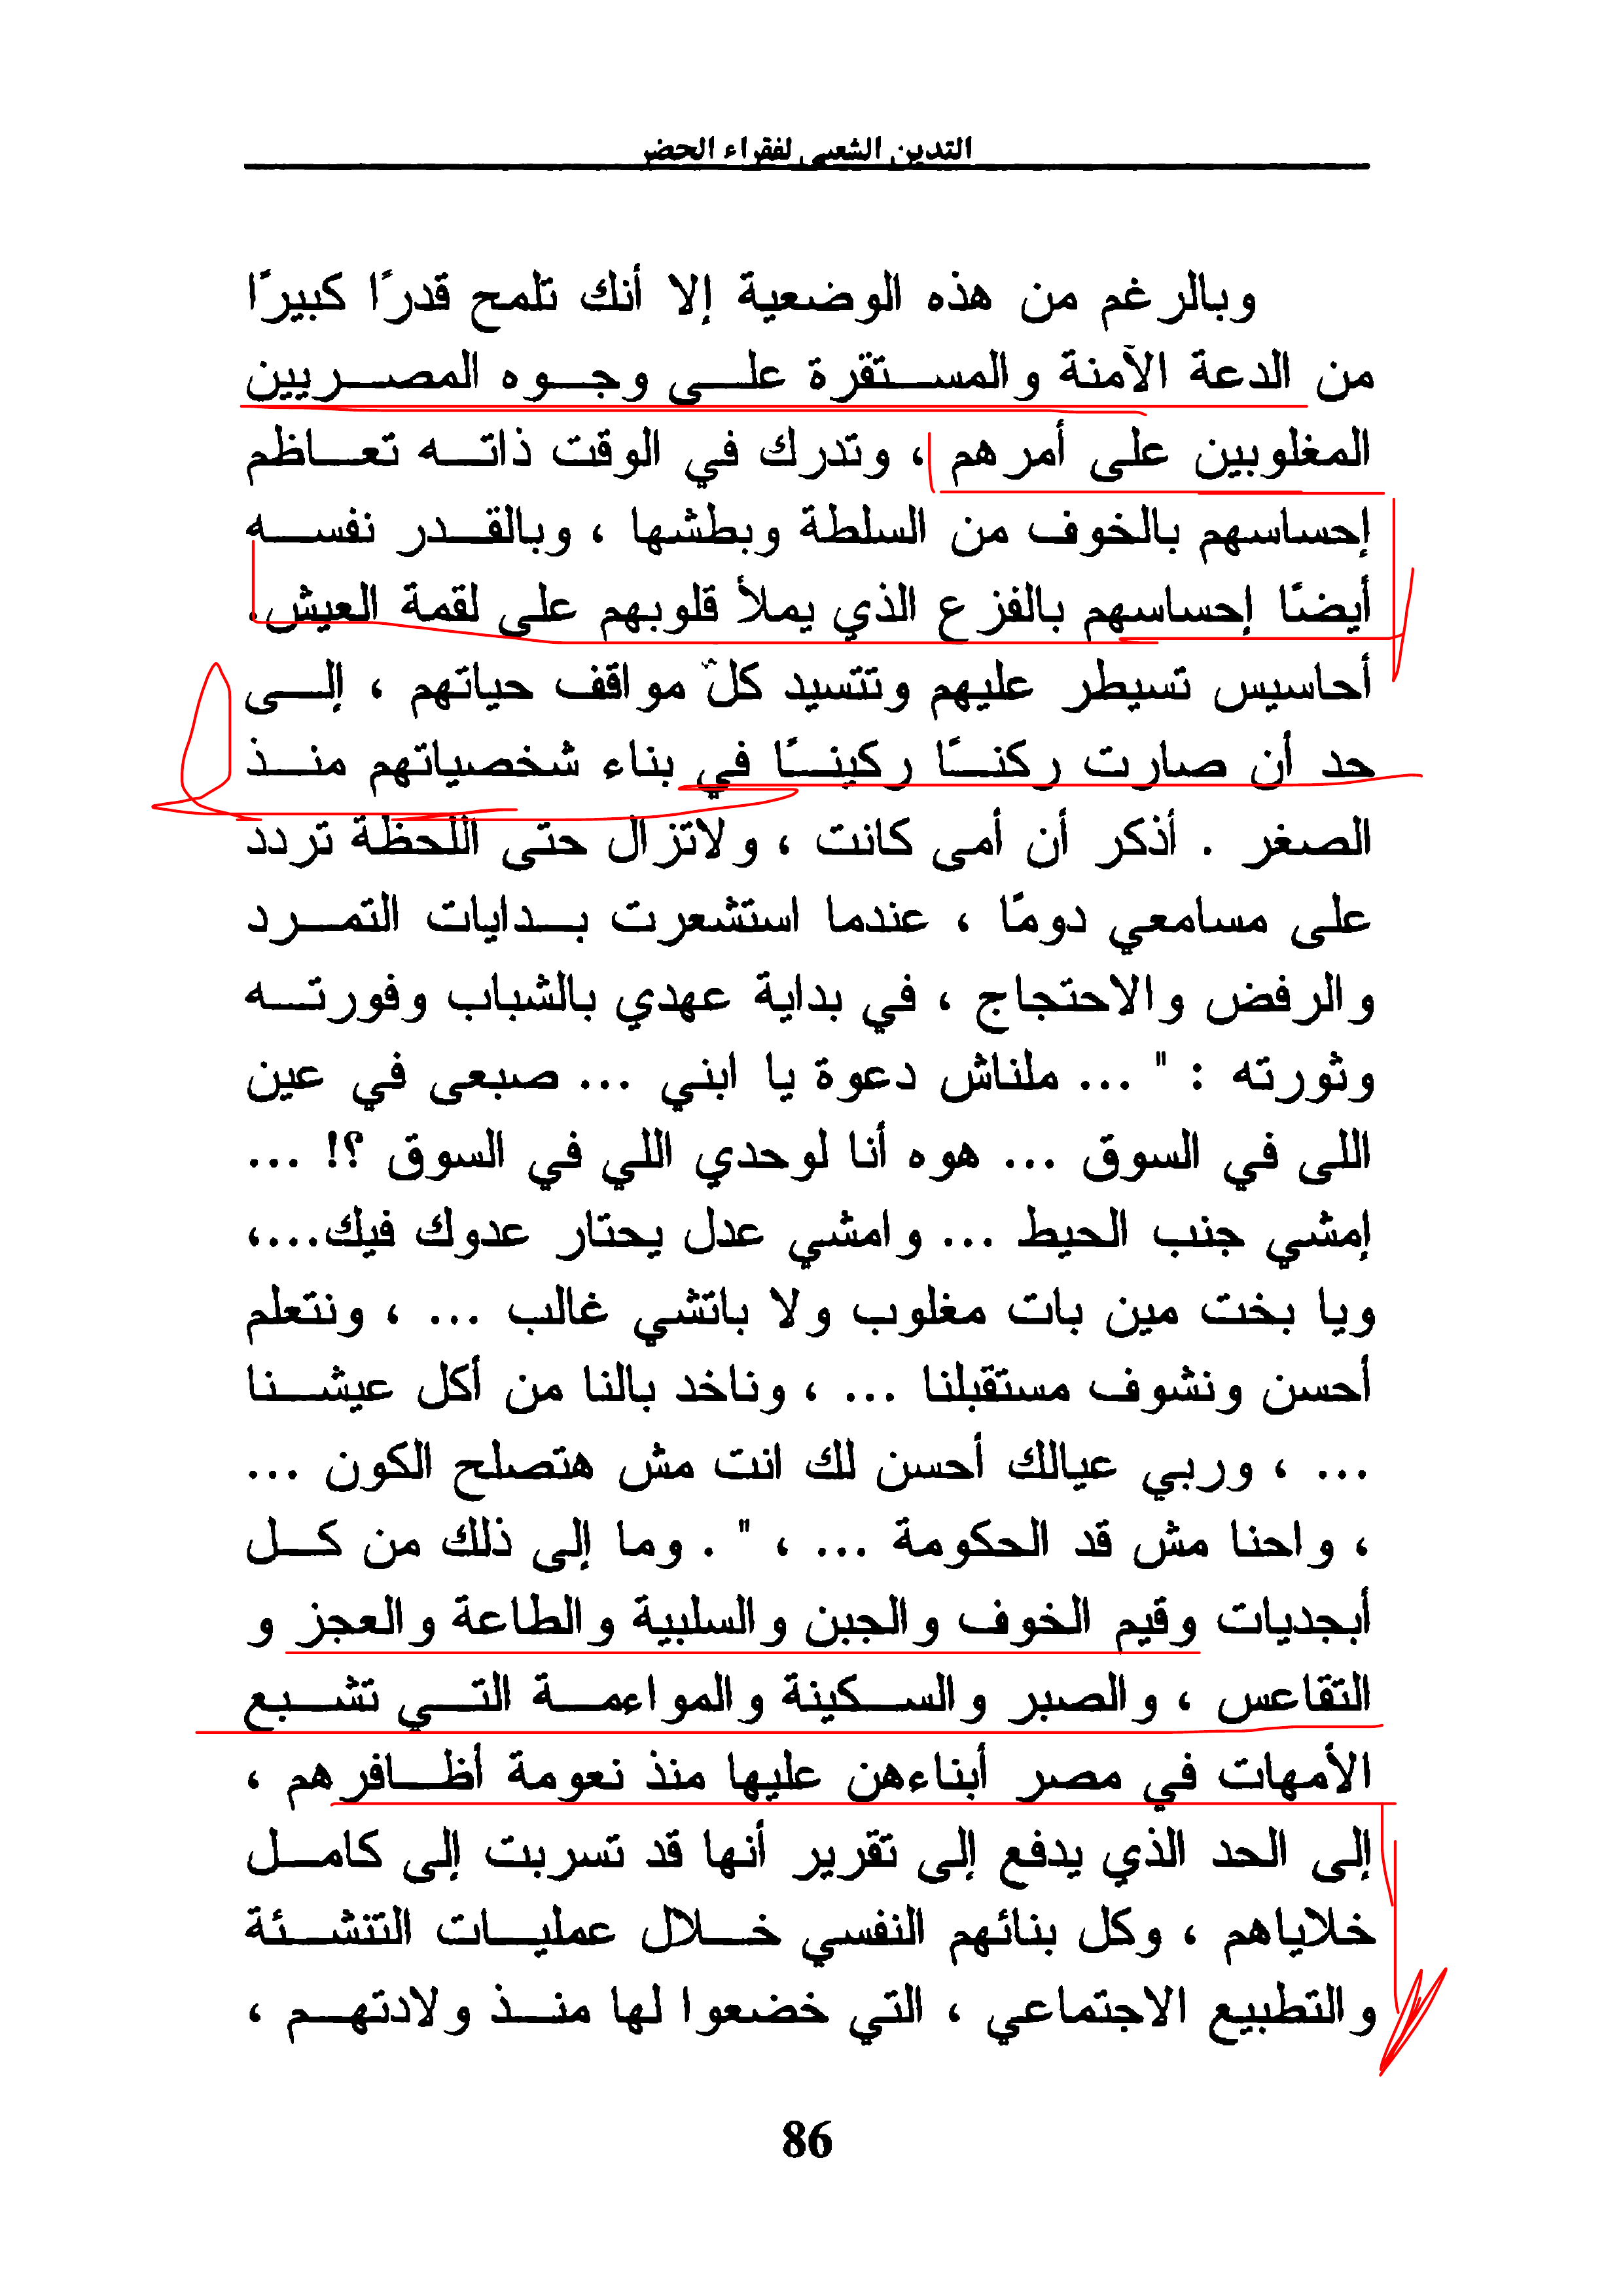 التدين الشعبي لفقراء الحضر
وبالرغم من هذه الوضعية إلا أنك تلمح قدرًا كبيرًا
من الدعة الآمنة والمستقرة على وجوه المصريين
المغلوبين على أمرهم ، وتدرك في الوقت ذاته تعاظم
إحساسهم بالخوف من السلطة وبطشها ، وبالقدر نفسه
أيضًا إحساسهم بالفزع الذي يملأ قلوبهم على لقمة العيش.
أحاسيس تسيطر عليهم وتتسيد كلّ مواقف حياتهم ، إلى
حد أن صارت ركنًا ركينًا في بناء شخصياتهم منذ
الصغر . أذكر أن أمى كانت ، ولاتزال حتى اللحظة تردد
على مسامعي دومًا ، عندما استشعرت بدايات التمرد
والرفض والاحتجاج ، في بداية عهدي بالشباب وفورته
وثورته : " ... ملناش دعوة يا ابني ... صبعى في عين
اللى في السوق ... هوه أنا لوحدي اللي في السوق ؟! ...
إمشي جنب الحيط ... وامشي عدل يحتار عدوك فيك...،
ويا بخت مين بات مغلوب ولا باتشي غالب ... ، ونتعلم
أحسن ونشوف مستقبلنا ... ، وناخد بالنا من أكل عيشنا
... ، وربي عيالك أحسن لك انت مش هتصلح الكون ...
، واحنا مش قد الحكومة ... ، " . وما إلى ذلك من كل
أبجديات وقيم الخوف والجبن والسلبية والطاعة والعجز و
التقاعس ، والصبر والسكينة والمواءمة التي تشبع
الأمهات في مصر أبناءهن عليها منذ نعومة أظافرهم ،
إلى الحد الذي يدفع إلى تقرير أنها قد تسربت إلى كامل
خلاياهم ، وكل بنائهم النفسي خلال عمليات التنشئة
والتطبيع الاجتماعي ، التي خضعوا لها منذ ولادتهم ،
86